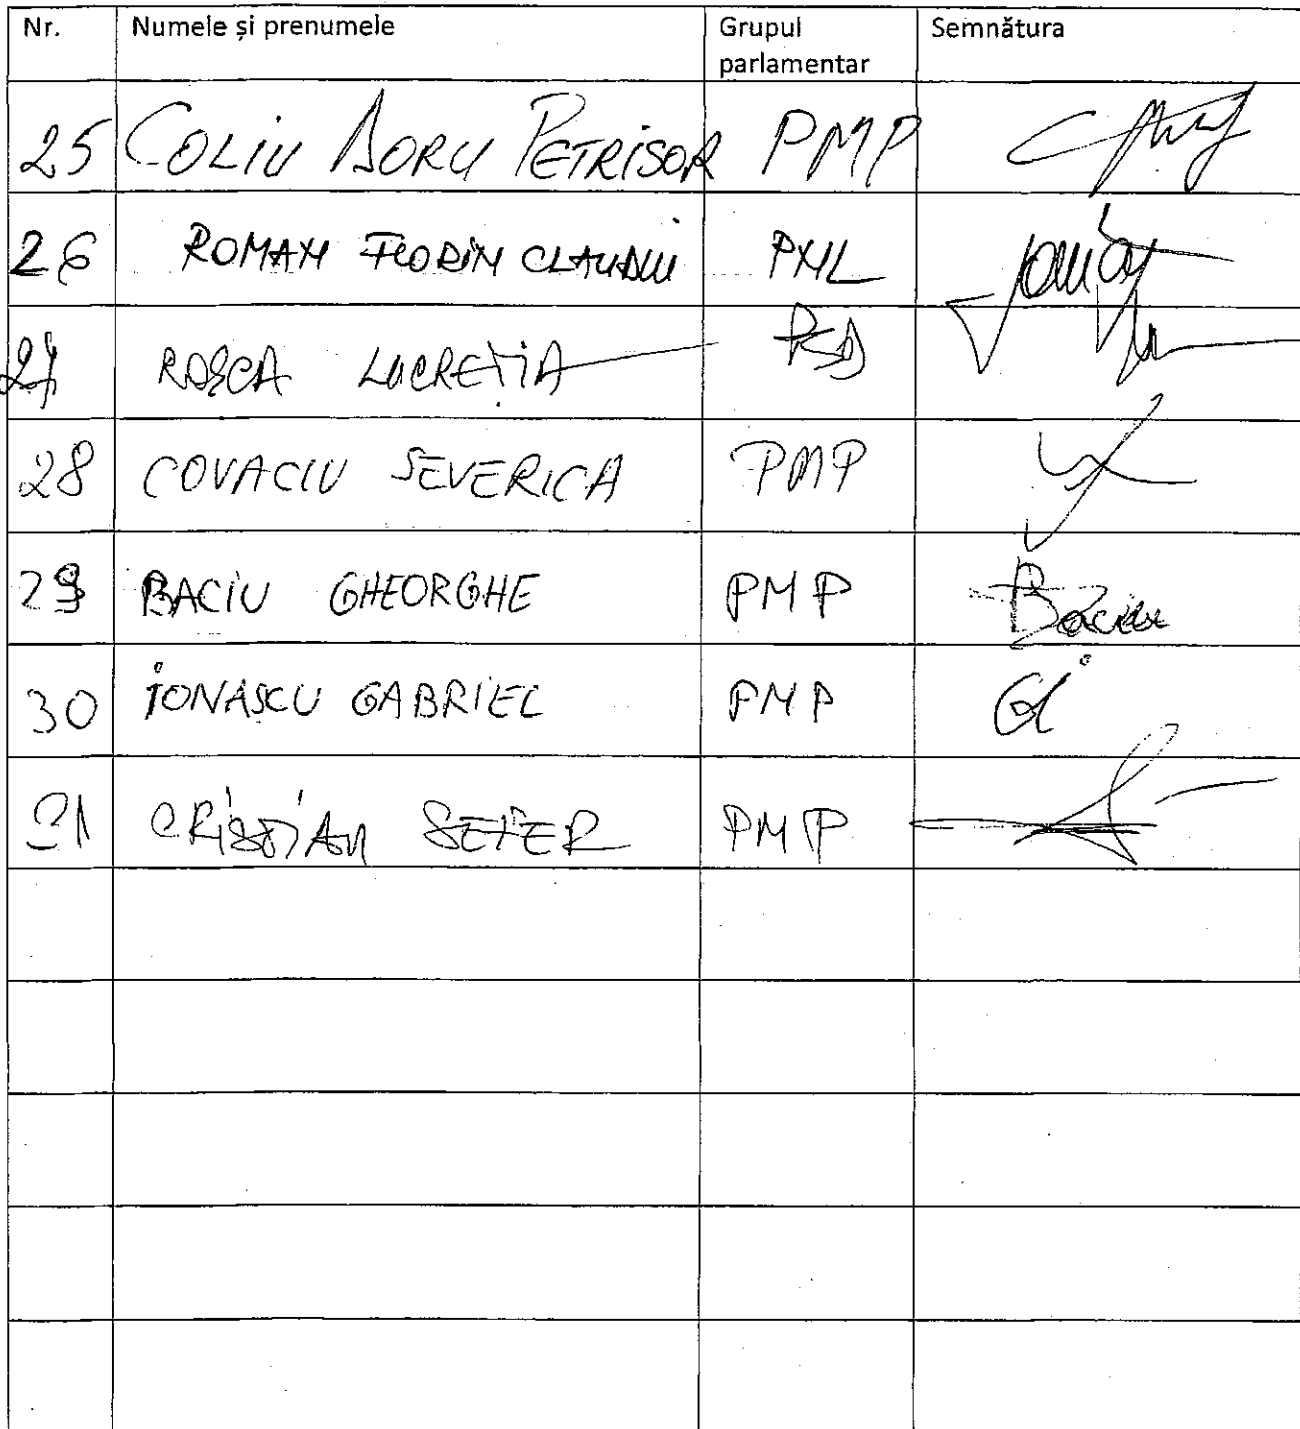 Nr. Numele și prenumele Grupul parlamentar Semnătura
25 COLIU DORU PETRISOR PMP
26 ROMAN FLORIN CLAUDIU PNL
27 ROȘCA LUCREȚIA PSD
28 COVACIU SEVERICA PMP
29 BACIU GHEORGHE PMP Baciu
30 IONAȘCU GABRIEL PMP GI
31 CRISTIAN SEFER PMP